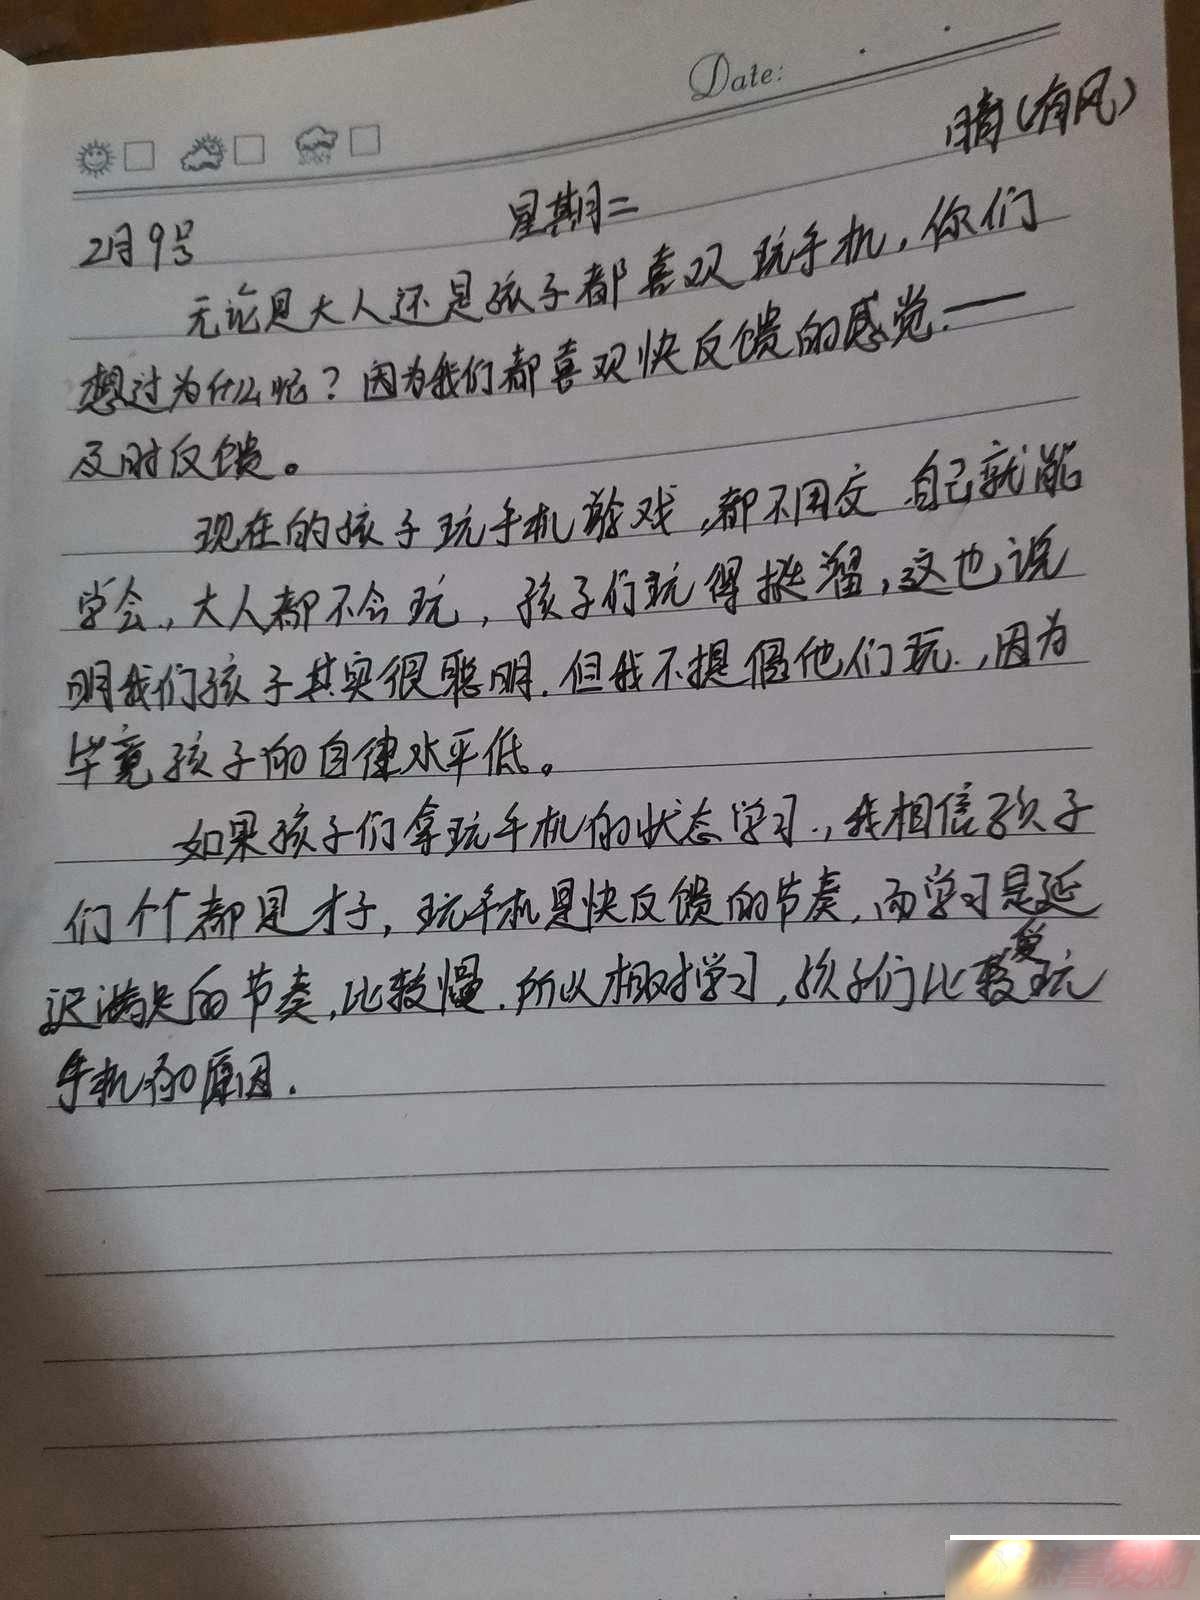 Date:
晴(有风)
2月9号 星期二
无论是大人还是孩子都喜欢玩手机，你们
想过为什么呢？因为我们都喜欢快反馈的感觉——
及时反馈。
现在的孩子玩手机游戏，都不用教 自己就能
学会，大人都不会玩，孩子们玩得挺溜，这也说
明我们孩子其实很聪明.但我不提倡他们玩，因为
毕竟孩子的自律水平低。
如果孩子们拿玩手机的状态学习，我相信孩子
们个个都是才子，玩手机是快反馈的节奏，而学习是延
迟满足的节奏，比较慢.所以相对学习，孩子们比较爱玩
手机的原因.
恭喜发财